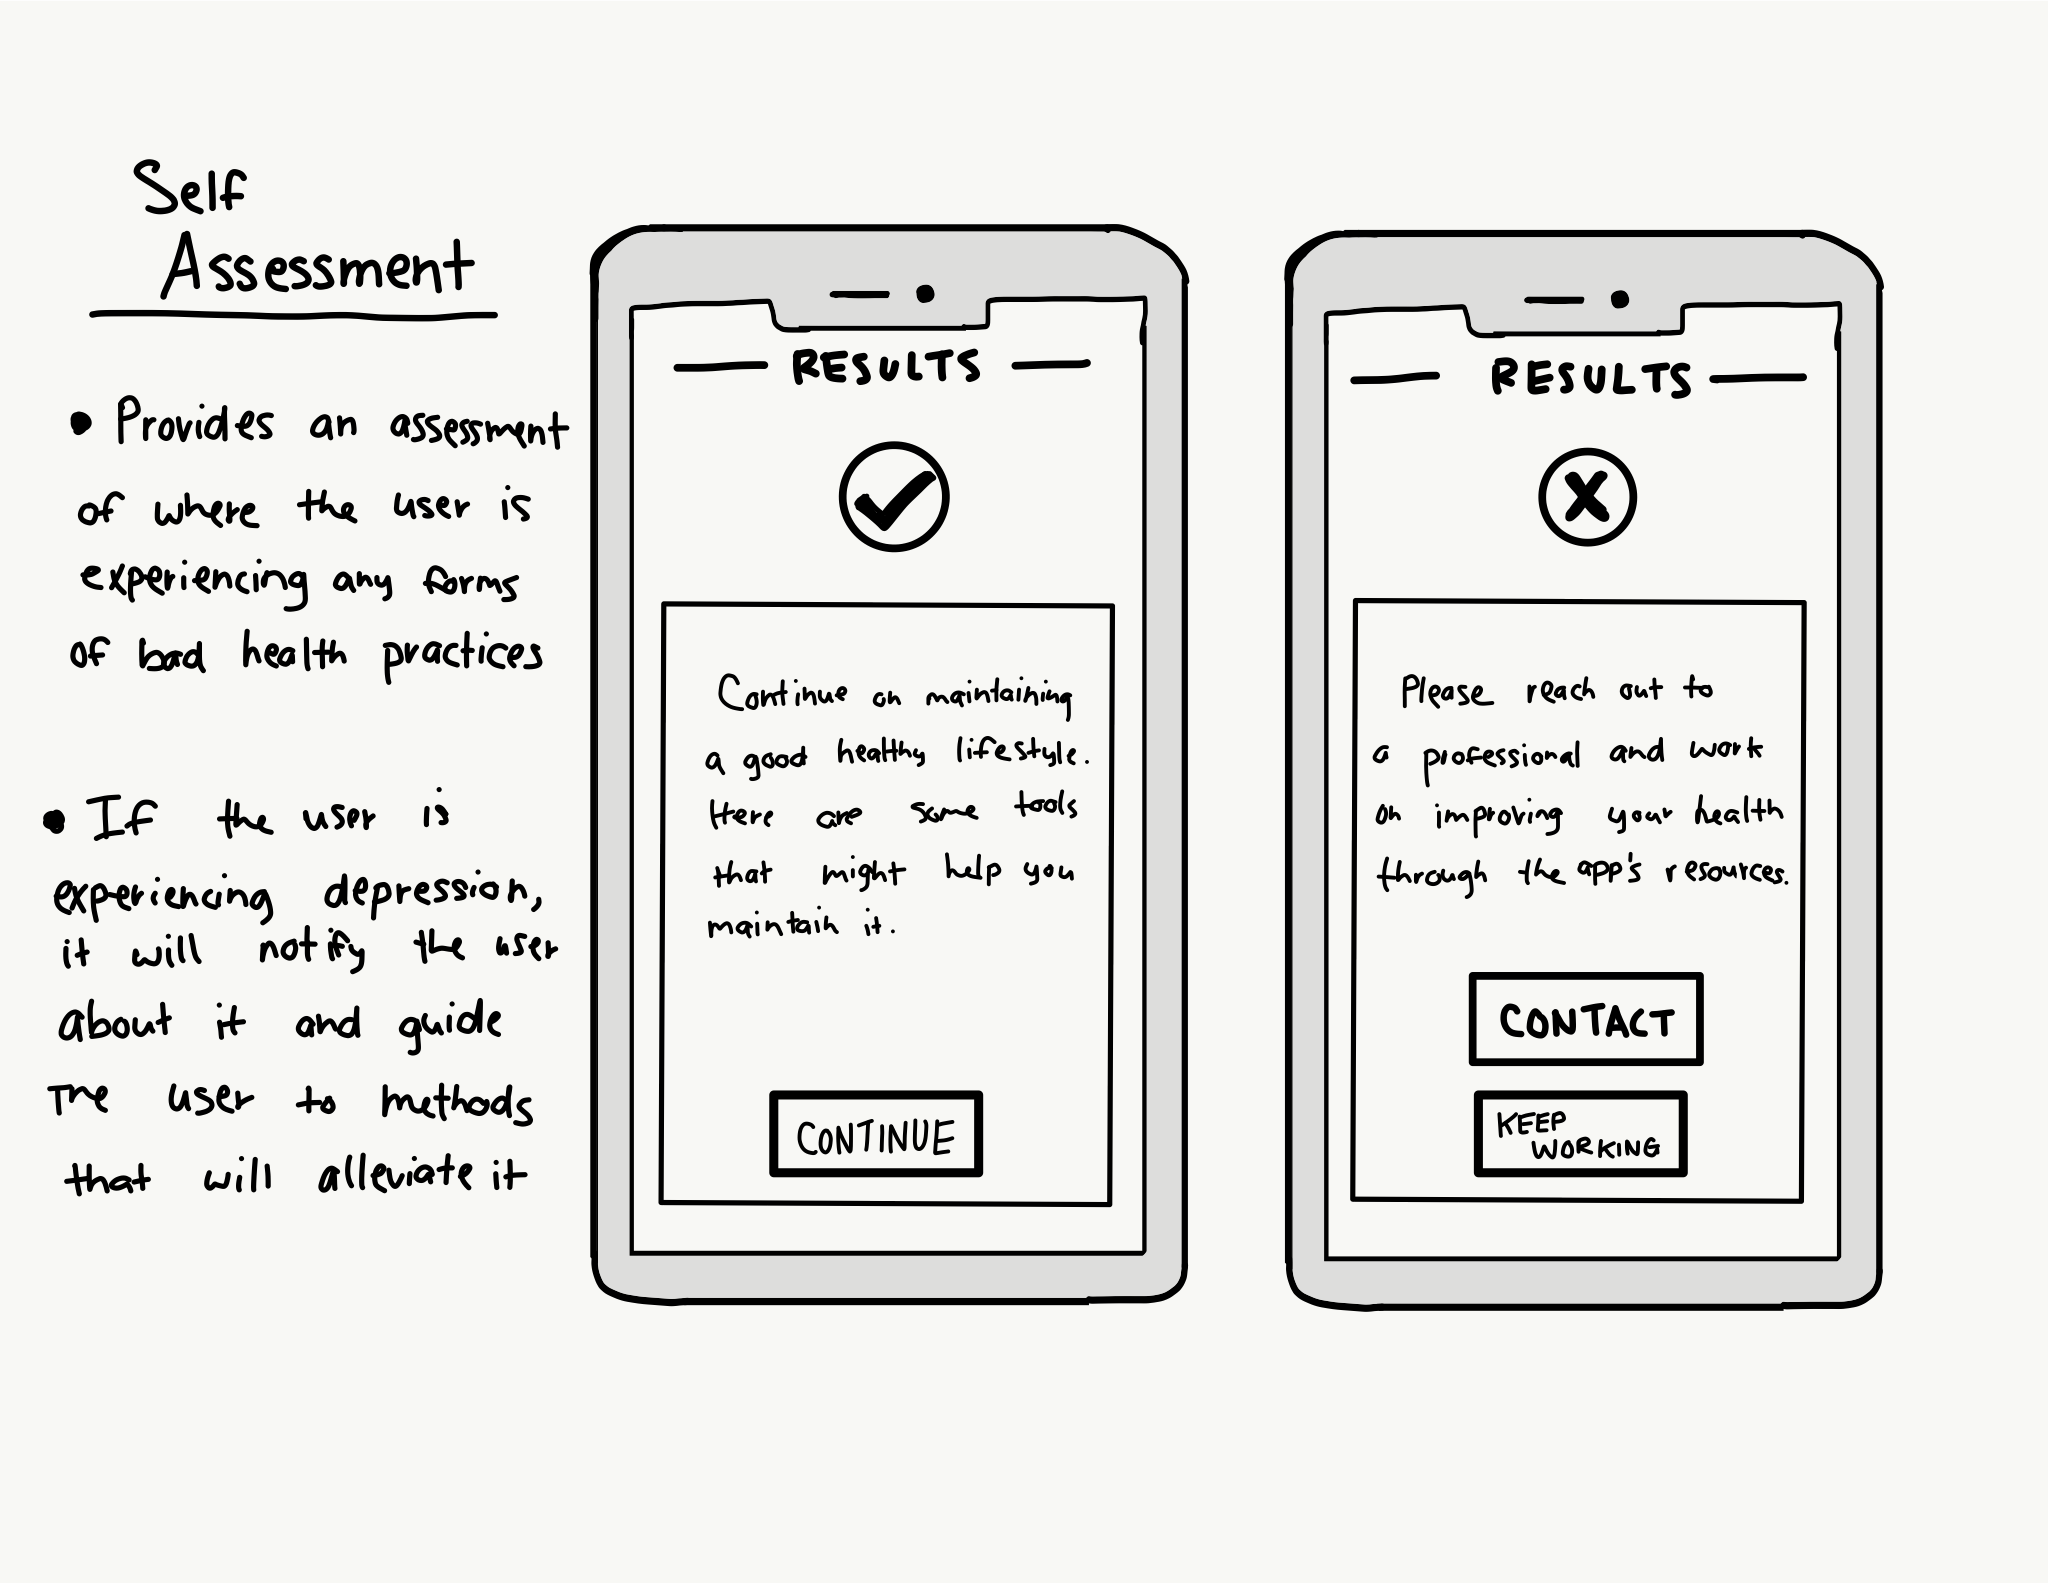 Self
Assessment
• Provides an assessment
of where the user is
experiencing any forms
of bad health practices
• If the user is
experiencing depression,
it will notify the user
about it and guide
The user to methods
that will alleviate it
RESULTS
Continue on maintaining
a good healthy lifestyle.
Here are some tools
that might help you
maintain it.
CONTINUE
RESULTS
X
Please reach out to
a professional and work
on improving your health
through the app's resources.
CONTACT
KEEP
WORKING